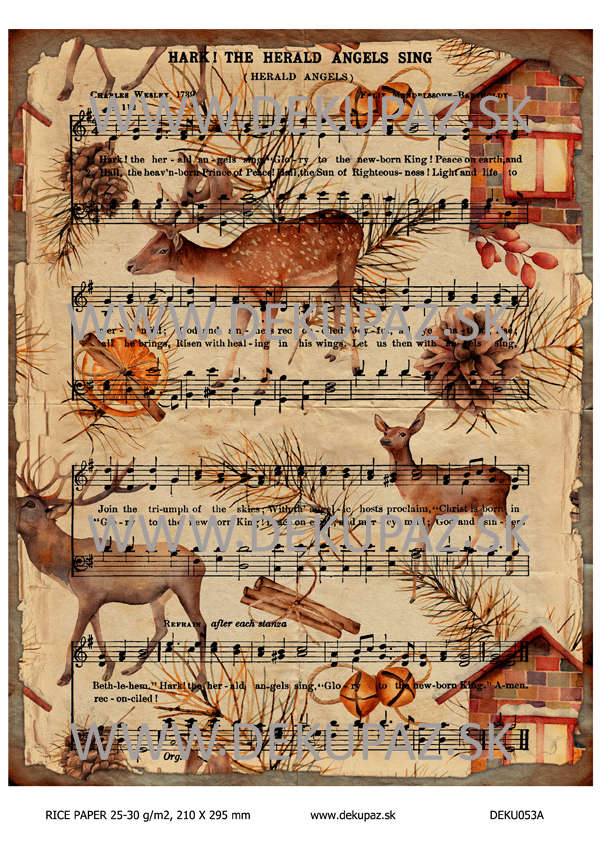 HARK! THE HERALD ANGELS SING
(HERALD ANGELS)
CHARLES WESLEY, 1739
FELIX MENDELSSOHN-BARTHOLDY
WWW.DEKUPAZ.SK
1. Hark! the her - ald an - gels sing, "Glo - ry to the new-born King! Peace on earth, and
2. Hail, the heav'n-born Prince of Peace! Hail, the Sun of Righteous - ness! Light and life to
WWW.DEKUPAZ.SK
mer - mild; God and sin - ners rec - on - ciled!"
all he brings, Risen with heal - ing in his wings. Let us then with angels sing,
Join the tri - umph of the skies; With th' angel - ic hosts proclaim, "Christ is born in
"Glo - ry to the new-born King! Peace on earth, and mer - cy mild; God and sin - ners
WWW.DEKUPAZ.SK
REFRAIN after each stanza
Beth-le-hem." Hark! the her - ald an-gels sing, "Glo - ry to the new-born King." A-men.
rec - on-ciled!
WWW.DEKUPAZ.SK
Org.
RICE PAPER 25-30 g/m2, 210 X 295 mm www.dekupaz.sk DEKU053A